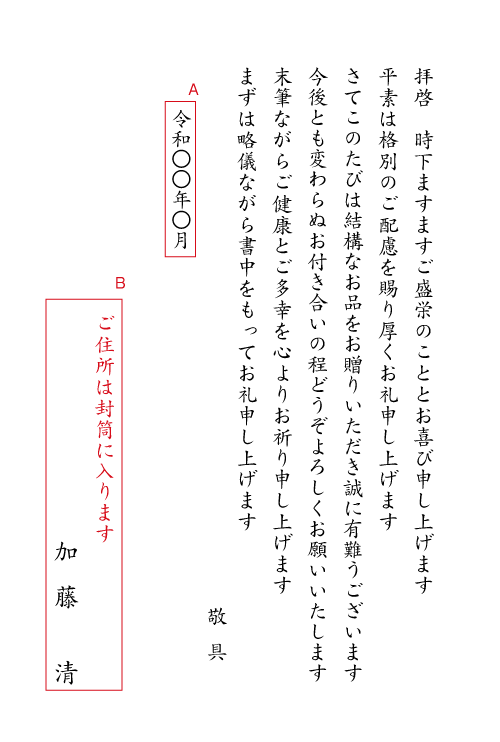 拝啓　時下ますますご盛栄のこととお喜び申し上げます
平素は格別のご配慮を賜り厚くお礼申し上げます
さてこのたびは結構なお品をお贈りいただき誠に有難うございます
今後とも変わらぬお付き合いの程どうぞよろしくお願いいたします
末筆ながらご健康とご多幸を心よりお祈り申し上げます
まずは略儀ながら書中をもってお礼申し上げます
敬具
A
令和〇〇年〇月
B
ご住所は封筒に入ります
加藤　清